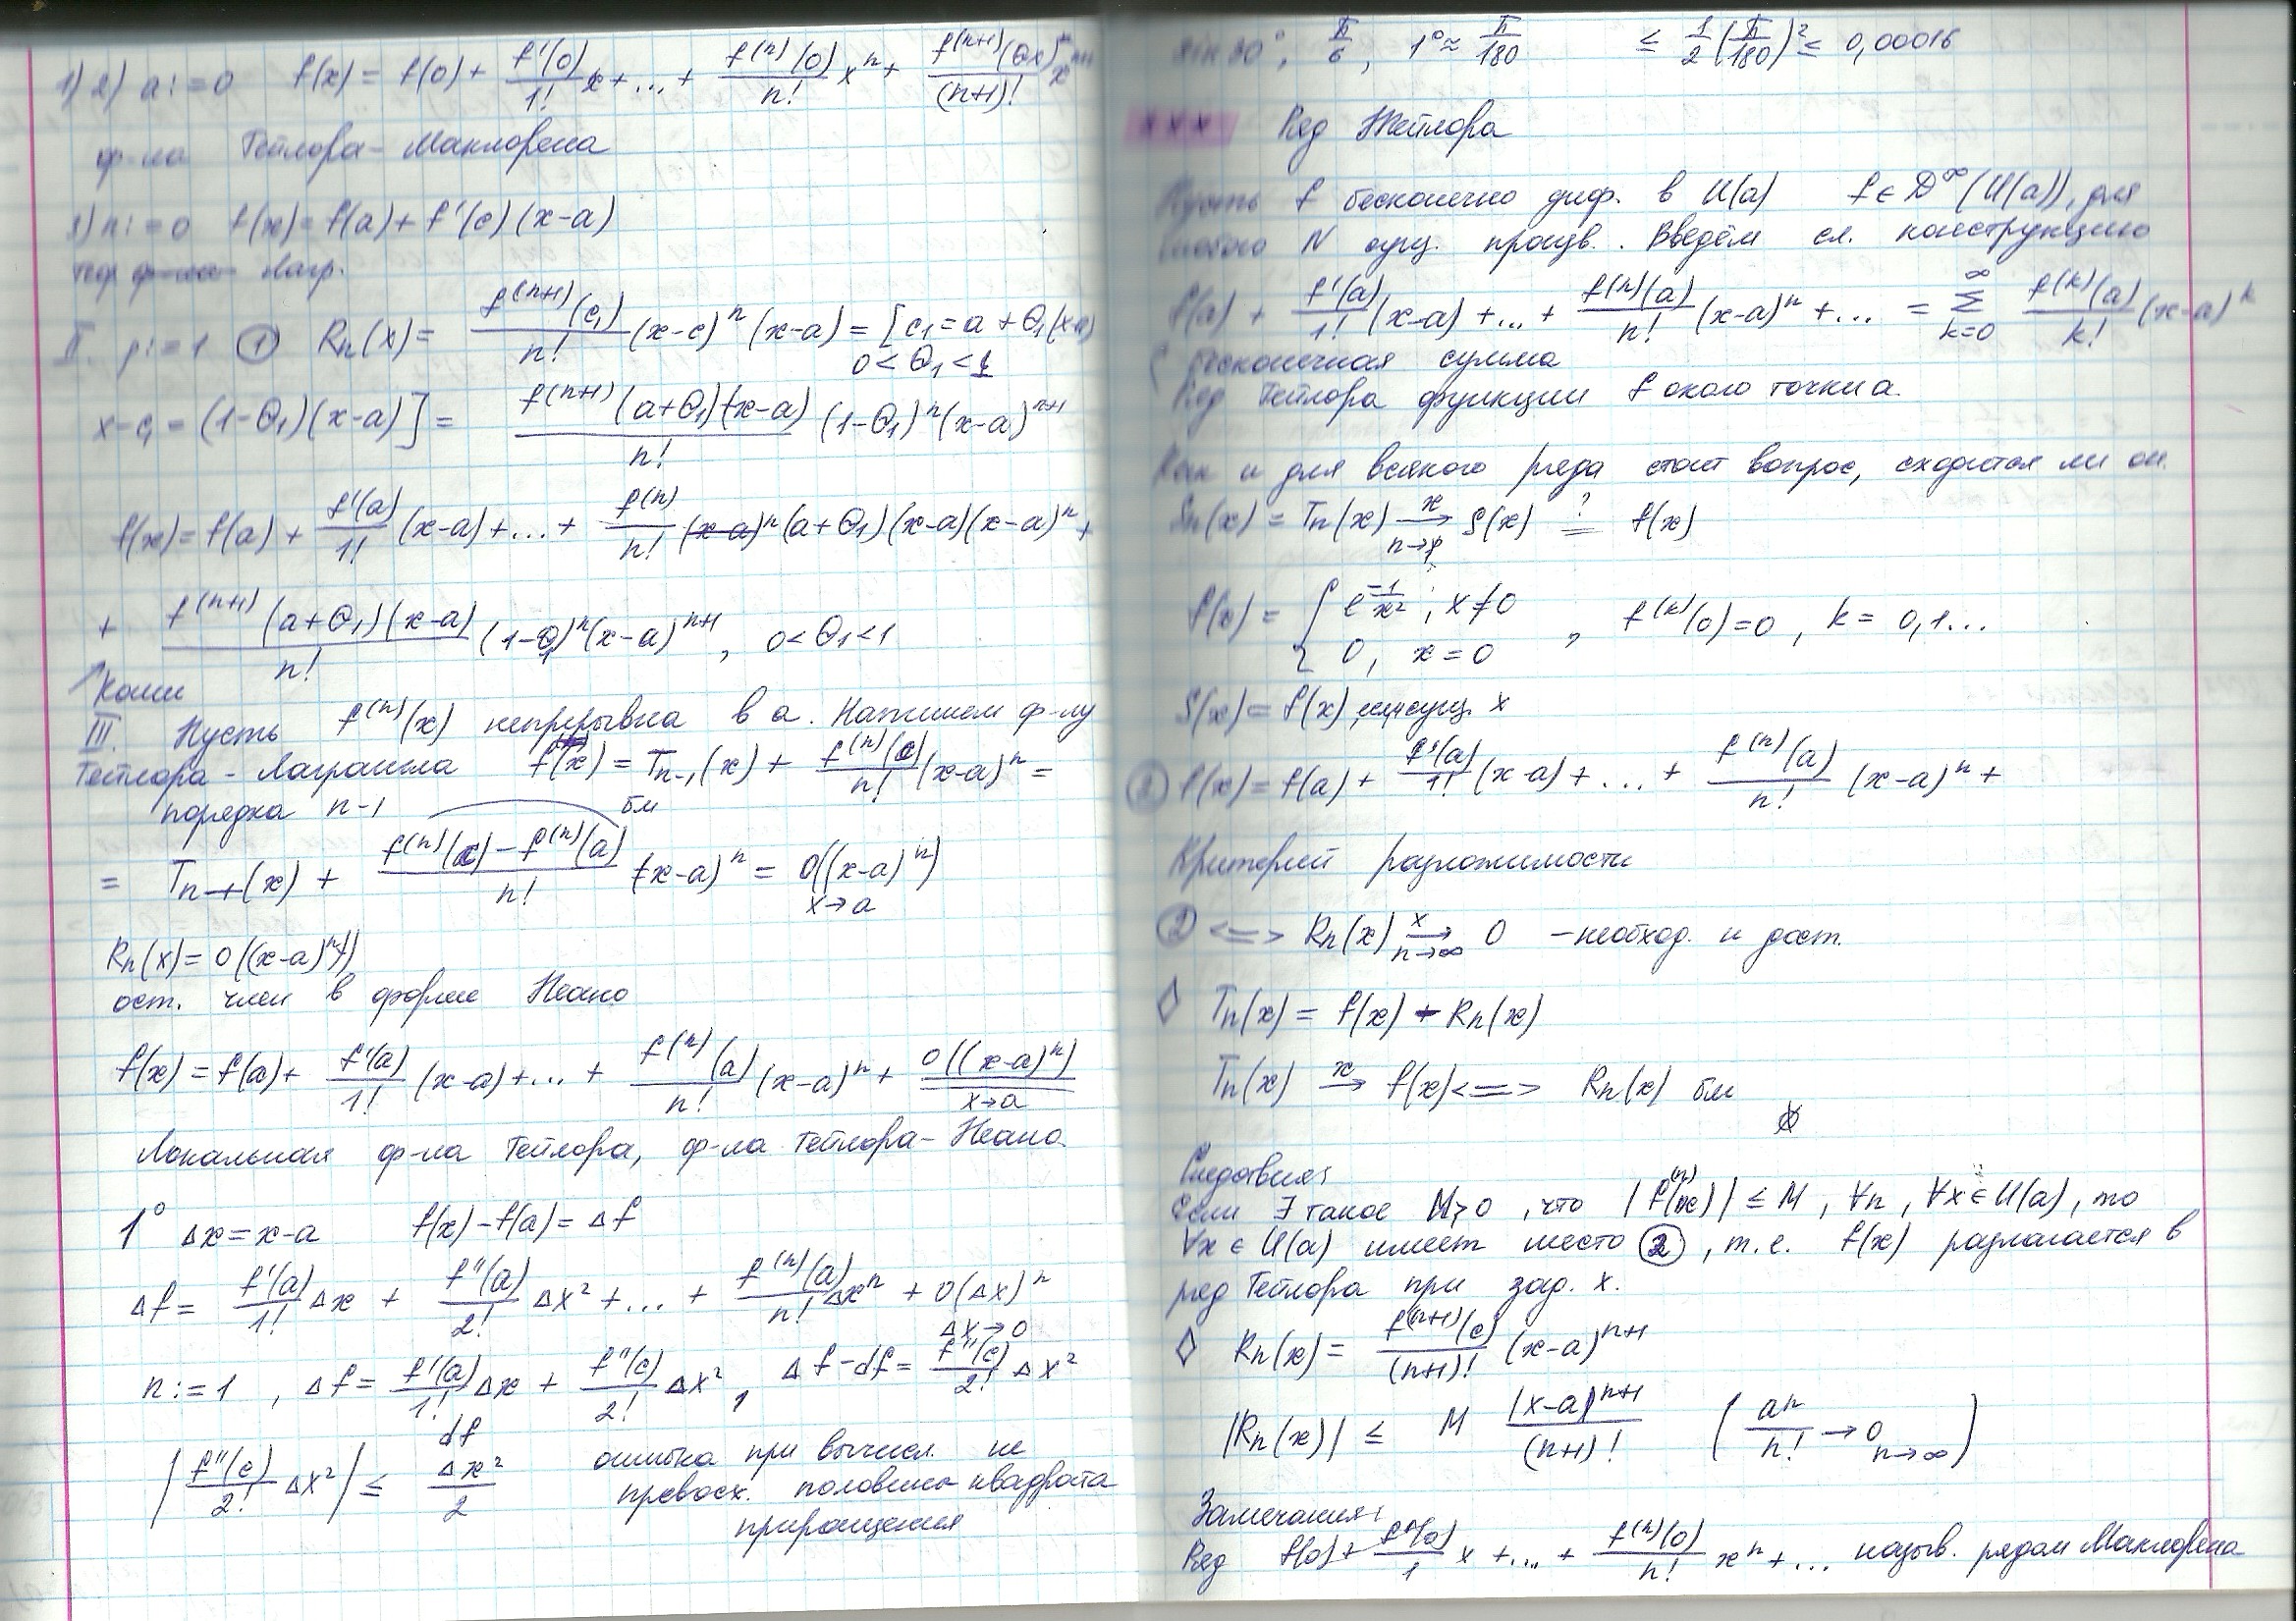 1) 2) a := 0 f(x) = f(0) + f'(0)/1! x + ... + f⁽ⁿ⁾(0)/n! xⁿ + f⁽ⁿ⁺¹⁾(Θx)/(n+1)! xⁿ⁺¹
ф-ла Тейлора - Маклорена
3) n := 0 f(x) = f(a) + f'(c)(x-a)
Лагр.
II. p := 1 ① Rₙ(x) = f⁽ⁿ⁺¹⁾(c₁)/n! (x-c)ⁿ(x-a) = [c₁ = a + Θ₁(x-a)
0 < Θ₁ < 1
x-c₁ = (1-Θ₁)(x-a)] = f⁽ⁿ⁺¹⁾(a+Θ₁)(x-a)/n! (1-Θ₁)ⁿ(x-a)ⁿ⁺¹
f(x) = f(a) + f'(a)/1! (x-a) + ... + f⁽ⁿ⁾/n! (x-a)ⁿ (a+Θ₁)(x-a)(x-a)ⁿ +
+ f⁽ⁿ⁺¹⁾(a+Θ₁)(x-a)/n! (1-Θ₁)ⁿ(x-a)ⁿ⁺¹, 0 < Θ₁ < 1
↑ Коши
III. Пусть f⁽ⁿ⁾(x) непрерывна в a. Напишем ф-лу
Тейлора - Лагранжа f(x) = Tₙ₋₁(x) + f⁽ⁿ⁾(c)/n! (x-a)ⁿ =
порядка n-1 бм
= Tₙ₋₁(x) + f⁽ⁿ⁾(c) - f⁽ⁿ⁾(a)/n! (x-a)ⁿ = o((x-a)ⁿ)
x→a
Rₙ(x) = o((x-a)ⁿ)
ост. член в форме Пеано
f(x) = f(a) + f'(a)/1! (x-a) + ... + f⁽ⁿ⁾(a)/n! (x-a)ⁿ + o((x-a)ⁿ)
x→a
Локальная ф-ла Тейлора, ф-ла Тейлора - Пеано.
1° Δx = x-a f(x) - f(a) = Δf
Δf = f'(a)/1! Δx + f''(a)/2! Δx² + ... + f⁽ⁿ⁾(a)/n! Δxⁿ + o(Δx)ⁿ
Δx→0
n := 1, Δf = f'(a)/1! Δx + f''(c)/2! Δx², Δf - df = f''(c)/2! Δx²
df
|f''(c)/2! Δx²| ≤ Δx²/2 ошибка при вычисл. не
превосх. половины квадрата
приращения
sin 30°, π/6, 1° ≈ π/180 ≤ 1/2 (π/180)² ≤ 0,00016
xxx Ряд Тейлора
Пусть f бесконечно диф. в U(a) f ∈ D^∞(U(a)), для
любого N сущ. произв. Введём сл. конструкцию
f(a) + f'(a)/1! (x-a) + ... + f⁽ⁿ⁾(a)/n! (x-a)ⁿ + ... = ∞ Σ k=0 f⁽ᵏ⁾(a)/k! (x-a)ᵏ
бесконечная сумма
Ряд Тейлора функции f около точки a.
Как и для всякого ряда стоит вопрос, сходится ли он.
Sₙ(x) = Tₙ(x) →ˣ n→∞ S(x) ?= f(x)
f(x) = { e^(-1/x²), x≠0
0, x = 0 , f⁽ᵏ⁾(0) = 0, k = 0,1...
S(x) = f(x) x
② f(x) = f(a) + f'(a)/1! (x-a) + ... + f⁽ⁿ⁾(a)/n! (x-a)ⁿ +
Критерий разложимости
② <=> Rₙ(x) →ˣ n→∞ 0 - необход. и дост.
◊ Tₙ(x) = f(x) - Rₙ(x)
Tₙ(x) →ˣ f(x) <=> Rₙ(x) бм
Следствия:
Если ∃ такое M>0, что |f⁽ⁿ⁾(x)| ≤ M, ∀n, ∀x ∈ U(a), то
∀x ∈ U(a) имеет место ②, т.е. f(x) разлагается в
ряд Тейлора при зад. x.
◊ Rₙ(x) = f⁽ⁿ⁺¹⁾(c)/(n+1)! (x-a)ⁿ⁺¹
|Rₙ(x)| ≤ M |x-a|ⁿ⁺¹/(n+1)! (aⁿ/n! → 0 n→∞)
Замечания:
Ряд f(0) + f'(0)/1 x + ... + f⁽ⁿ⁾(0)/n! xⁿ + ... назыв. рядом Маклорена